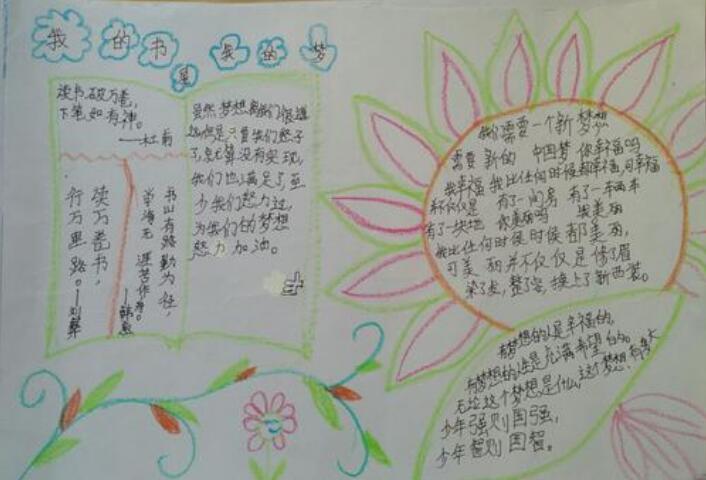 我的书是我的梦
读书破万卷，
下笔如有神。
——杜甫
读万卷书，
行万里路。——刘彝
书山有路勤为径，
学海无涯苦作舟。
——韩愈
虽然梦想离我们很遥
远但是只要我们努了
力,就算没有实现,
我们也满足了至
少我们努力过,
为我们的梦想
努力加油。
我们需要一个新梦想
需要新的 中国梦 你幸福吗
我幸福 我比任何时候都幸福,可幸福
有了一间房 有了一车两本
有了一块地 你美丽吗 我美丽
我比任何时侯时侯都美丽,
可美丽并不仅仅是修了眉
染了发,整了容,换上了新西装。
有梦想的人是幸福的,
有梦想的人是充满希望的。
无论这个梦想是什么,这个梦想,有多大
少年强则国强,
少年智则国智。